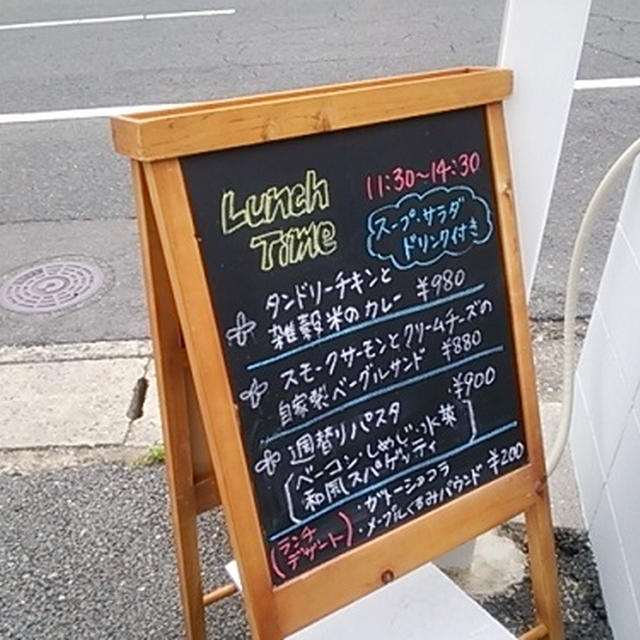 Lunch
Time
11:30～14:30
スープ・サラダ
ドリンク付き
タンドリーチキンと
雑穀米のカレー ¥980
スモークサーモンとクリームチーズの
自家製ベーグルサンド ¥880
週替りパスタ ¥900
(ベーコン・しめじ・水菜
和風スパゲッティ)
(ランチ
デザート)
・ガトーショコラ
・メープルくるみパウンド ¥200